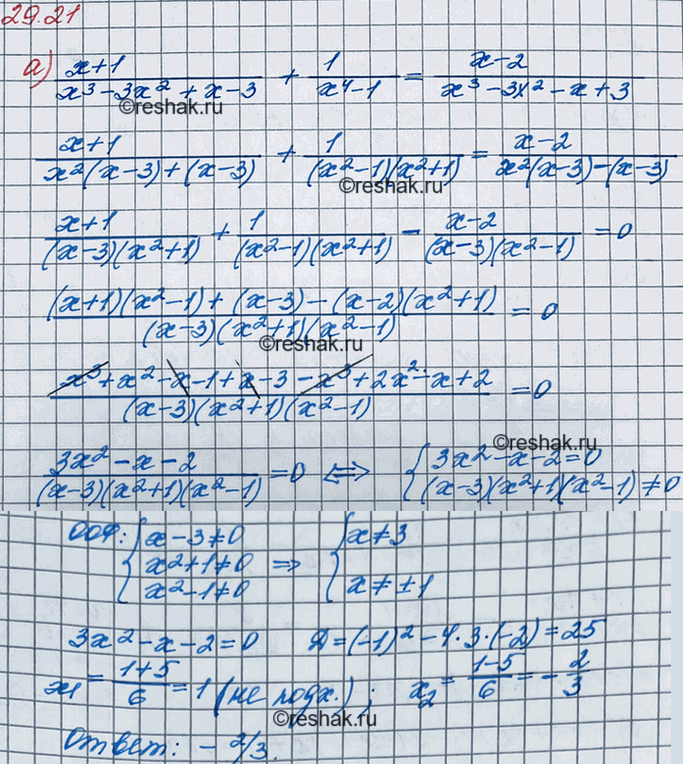 29.21
а) (x+1)/(x³-3x²+x-3) + 1/(x⁴-1) = (x-2)/(x³-3x²-x+3)
©reshak.ru
(x+1)/(x²(x-3)+(x-3)) + 1/((x²-1)(x²+1)) = (x-2)/(x²(x-3)-(x-3))
©reshak.ru
(x+1)/((x-3)(x²+1)) + 1/((x²-1)(x²+1)) - (x-2)/((x-3)(x²-1)) = 0
((x+1)(x²-1)+(x-3)-(x-2)(x²+1))/((x-3)(x²+1)(x²-1)) = 0
©reshak.ru
(x³+x²-x-1+x-3-x³+2x²-x+2)/((x-3)(x²+1)(x²-1)) = 0
©reshak.ru
(3x²-x-2)/((x-3)(x²+1)(x²-1)) = 0 ⇔ { 3x²-x-2=0
(x-3)(x²+1)(x²-1)≠0
ООФ: { x-3≠0 ⇒ { x≠3
x²+1≠0
x²-1≠0 x≠±1
3x²-x-2=0 Д=(-1)²-4·3·(-2)=25
x₁ = (1+5)/6 = 1 (не подх.); x₂ = (1-5)/6 = -2/3
©reshak.ru
Ответ: -2/3.